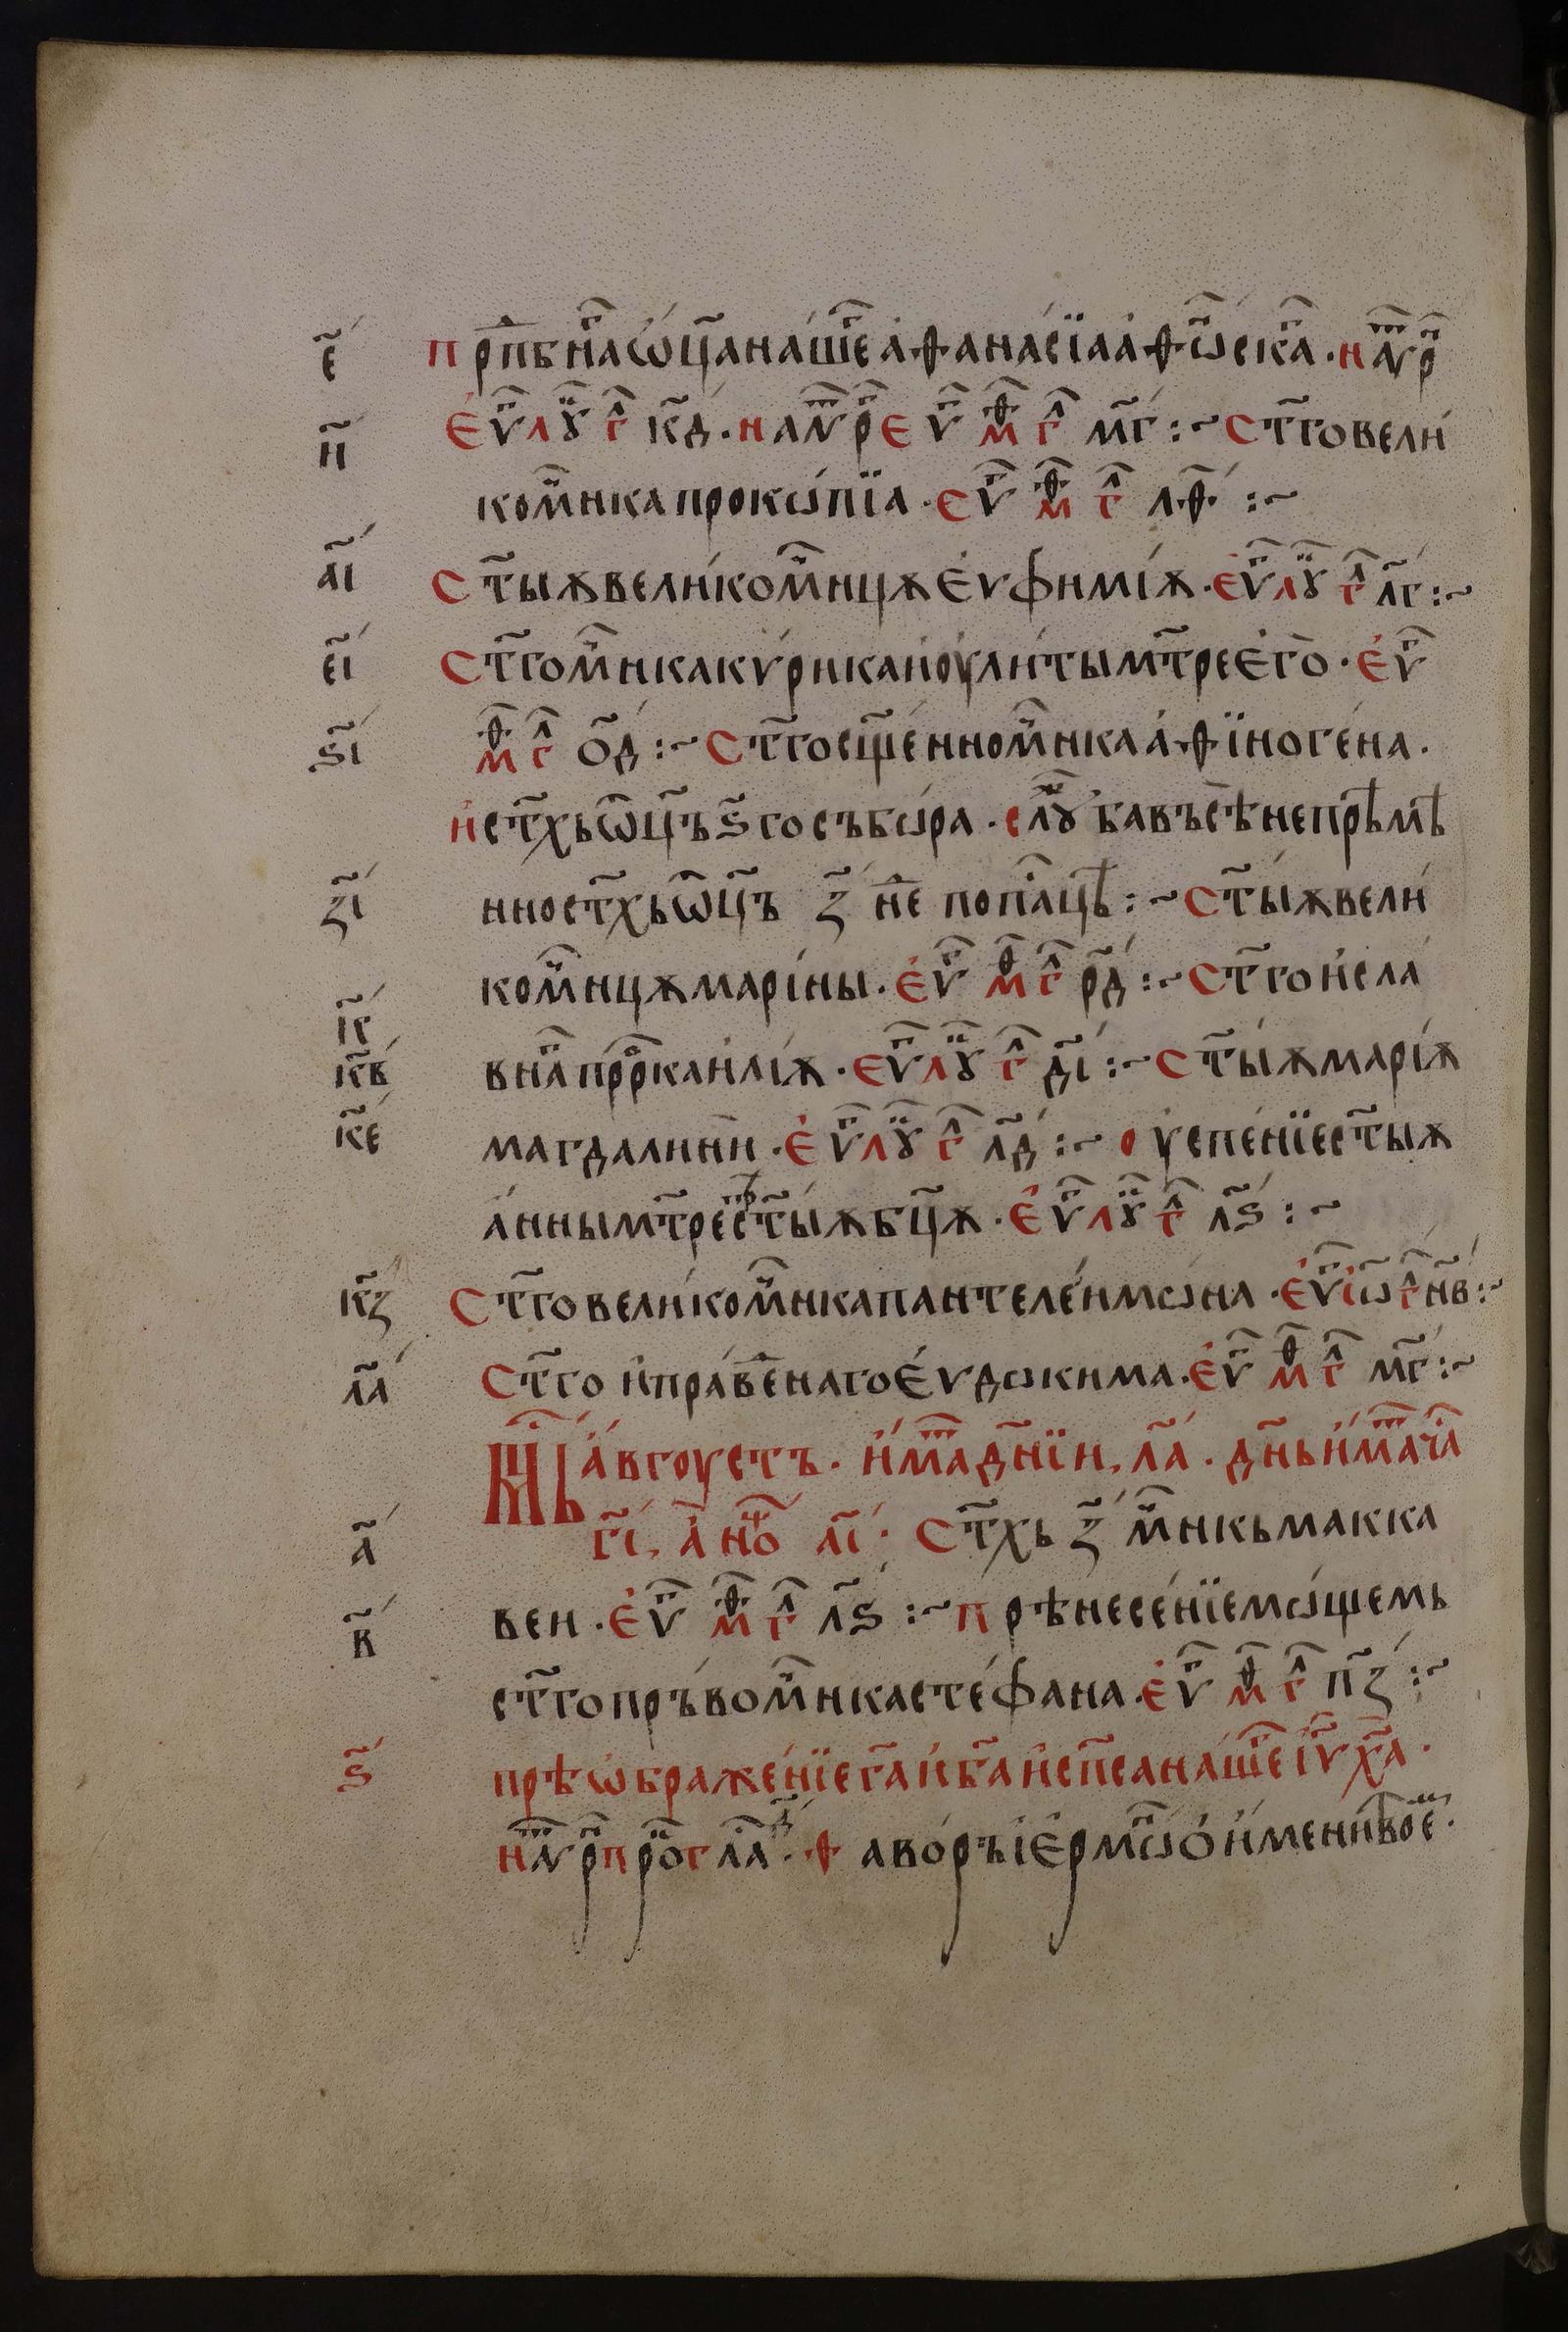 е҃ прⷣпбнⷢ҇аѡ҆ц҃анашеⷢ҇ а҆ѳанасїаа҆ѳѡⷩ҇скаⷢ҇ · на ѵ҆трⷩ҇
п҃ еѵⷢ҇ лꙋⷦ҇ гⷧ҇ к҃д · на ѵ҆трⷩ҇ еѵⷢ҇ мⷴ҇ гⷧ҇ м҃г :~ ст҃говели
комⷱ҇нкапрокѡпїа · еѵⷢ҇ мⷴ҇ гⷧ҇ л҃ѳ :~
а҃і ст҃ыѫвеликомⷱ҇ницѫеѵфиміѫ · еѵⷢ҇ лꙋⷦ҇ гⷧ҇ л҃г :~
е҃і ст҃гомⷱ҇нкакѵрикаиоулитымт҃реего̀ · еѵⷢ҇
ѕ҃і мⷴ҇ гⷧ҇ о҃д :~ ст҃госщ҃енномⷱ҇нкаа҆ѳїногена ·
ист҃хьѡц҃ъѕ҃госъбѡра · слꙋⷤ҇бавъсѣнепрѣмѣ
з҃і нност҃хьѡц҃ъ з҃ нⷣе попⷧ҇ацѣ :~ ст҃ыѫвели
комⷱ҇ницѫмаріны · еѵⷢ҇ мⷴ҇ гⷧ҇ р҃д :~ ст҃гоисла
к҃ внаⷢ҇прⷪ҇ркаиліѫ · еѵⷢ҇ лꙋⷦ҇ гⷧ҇ д҃і :~ ст҃ыѫмаріѫ
к҃в
к҃е магдалини · еѵⷢ҇ лꙋⷦ҇ гⷧ҇ л҃д :~ оуспенїест҃ыѫ
аннымт҃реⷫ҇рѣст҃ыѫбц҃ѫ · еѵⷢ҇ лꙋⷦ҇ гⷧ҇ л҃ѕ :~
к҃з ст҃говеликомⷱ҇нкапантелеимѡна · еѵⷢ҇іѡ҃гⷧ҇н҃в :~
л҃а ст҃го и҆правⷣенагоеѵдокима · еѵⷢ҇ мⷴ҇ гⷧ҇ м҃г :~
мⷭ҇ць августъ · иматⷮ҇ дн҃їи , л҃а · дн҃ьиматⷮ҇ чаⷭ҇
а҃ г҃і , а҆ нѡⷳ҇ а҃і · ст҃хь з҃ мⷱ҇нкьмакка
в҃ веи · еѵⷢ҇ мⷴ҇ гⷧ҇ л҃ѕ :~ прѣнесенїемѡщемь
ст҃гопръвомⷱ҇нкастефана · еѵⷢ҇ мⷴ҇ гⷧ҇ п҃з :~
ѕ҃ прѣѡбраженїег҃аиб҃аисп҃санашеⷢ҇іѵ҃х҃а ·
на ѵ҆трⷩ҇ прⷦ҇о глаⷭ҇ · ѳаворъіермѡⷩ҇оименитвоеⷨ҇ ·